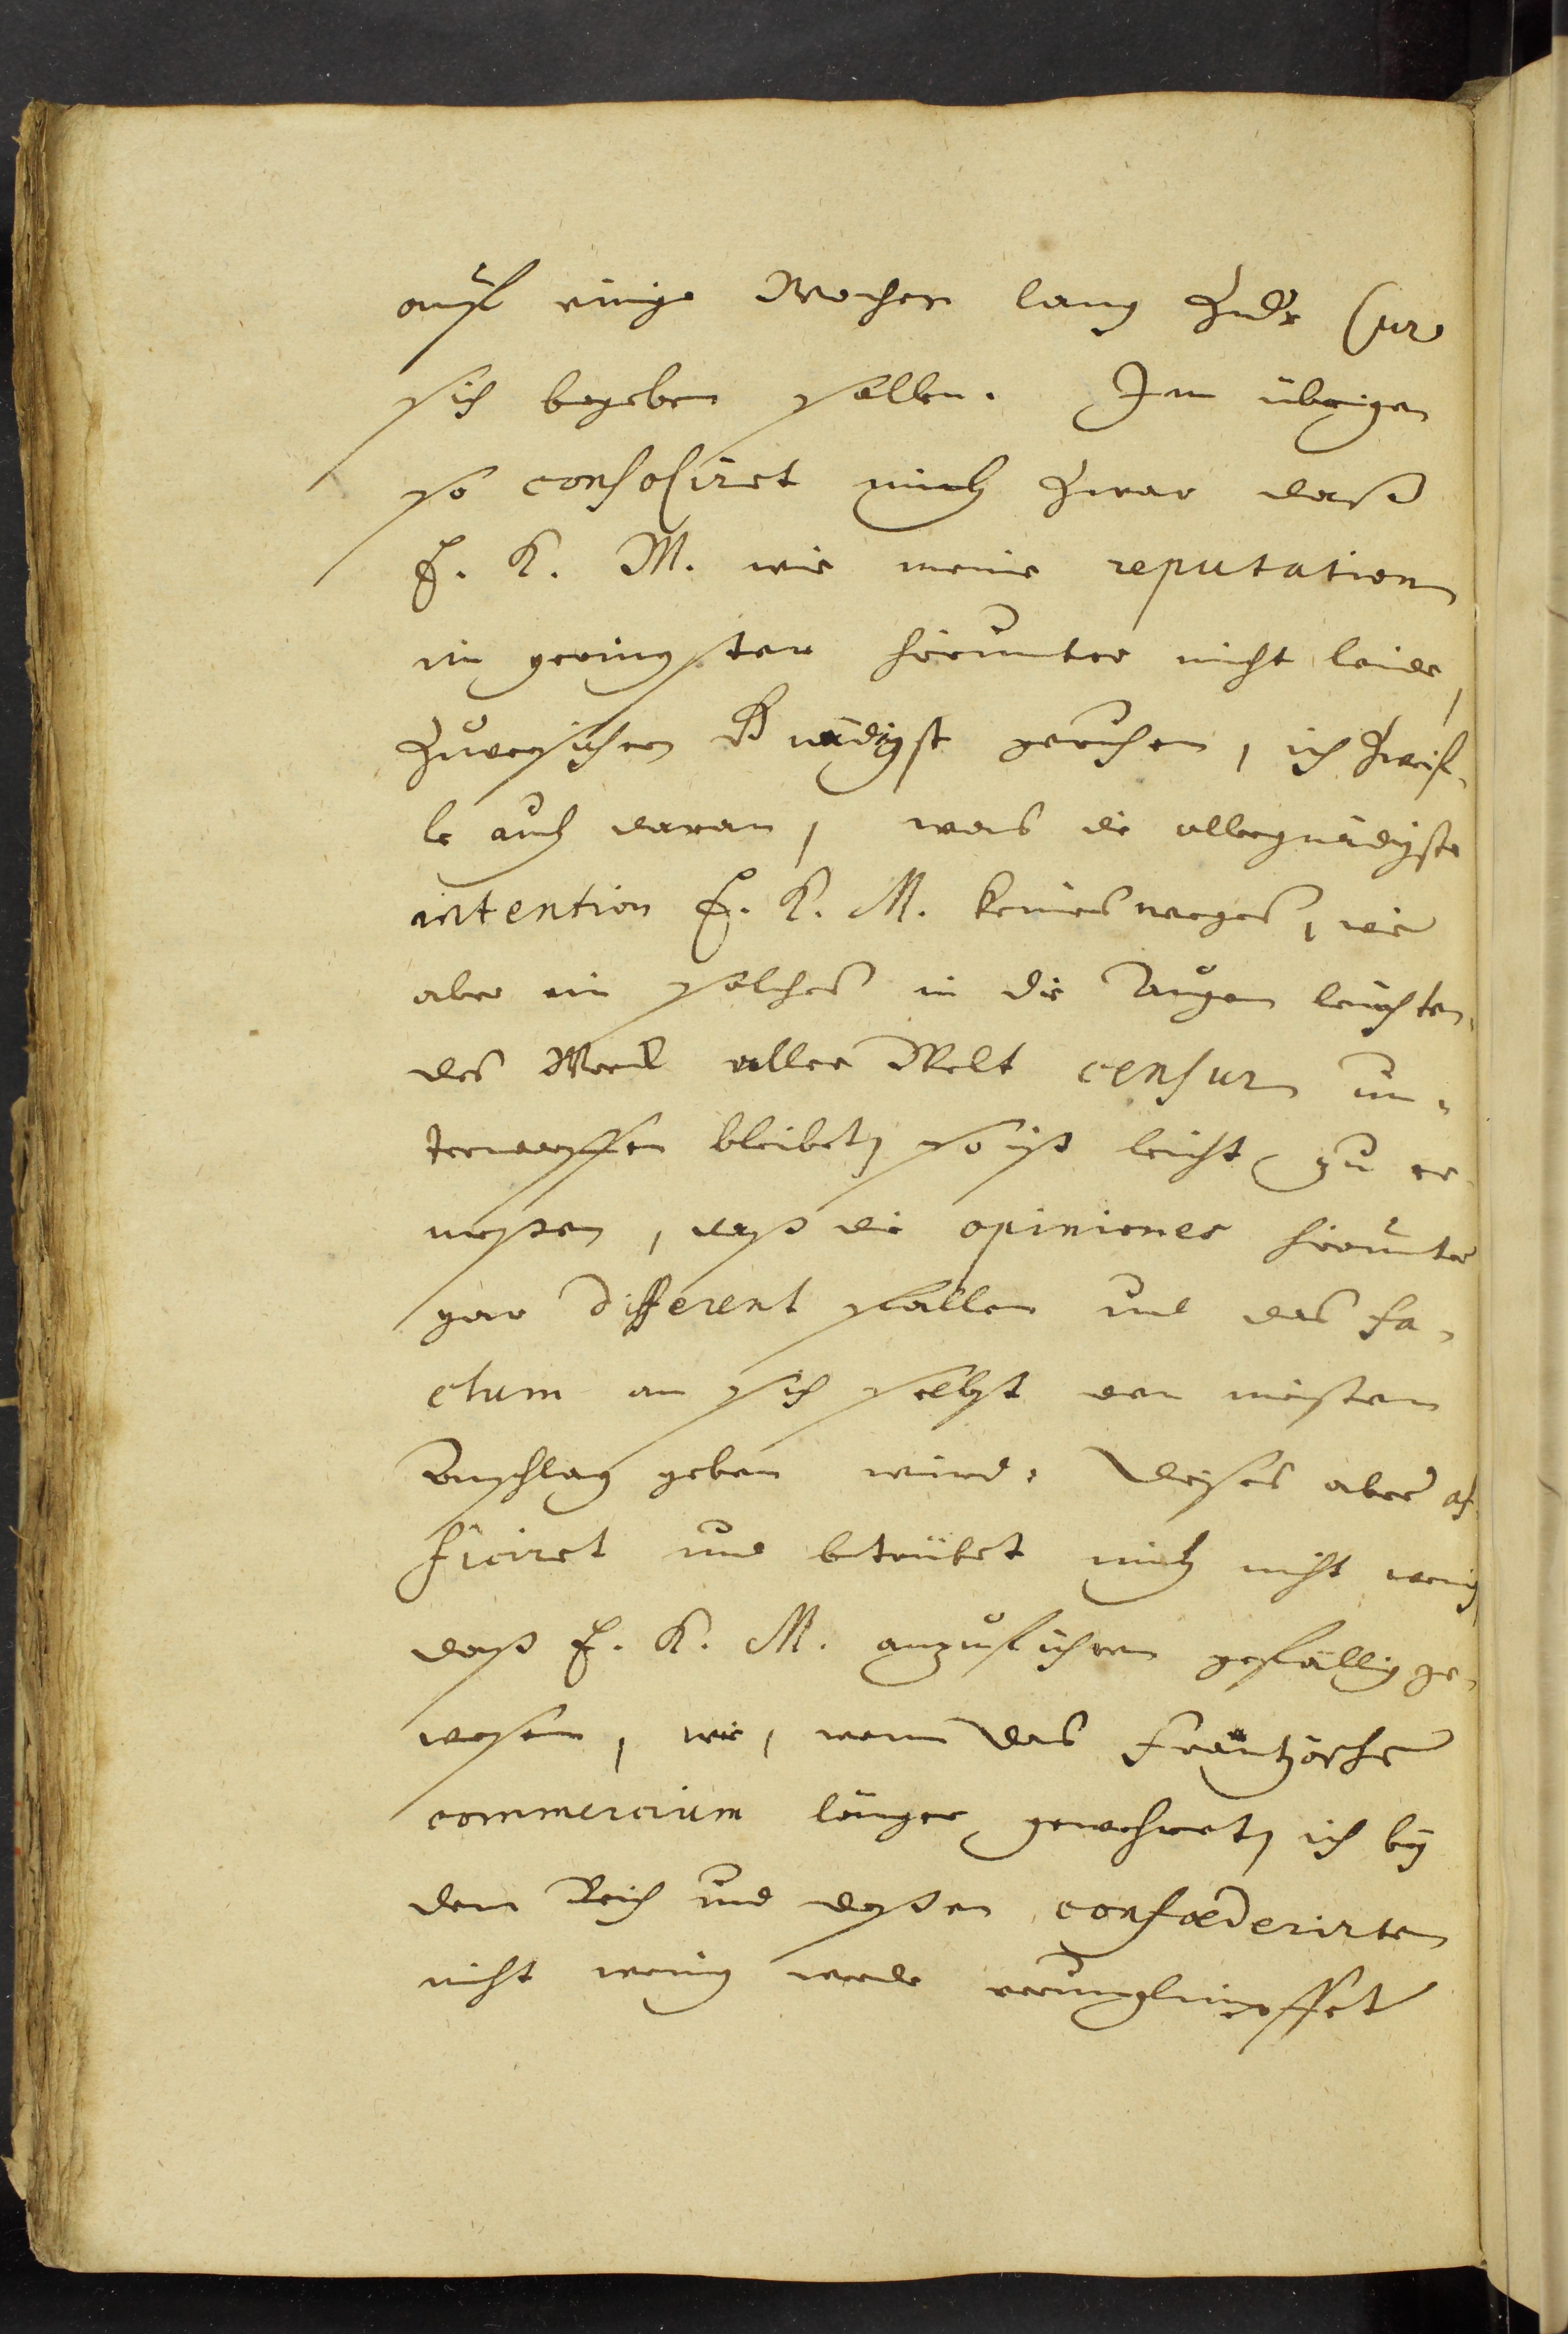 auf einige Wochen lang zur Cur
sich begeben sollen. Im übrigen
so consoliret mich zwar daß
E. K. M. wie meine reputation
im geringsten hierunter nicht leide,
zuversichern Gnädigst geruhen, ich zweif-
le auch daran, was die allergnädigste
intention E. K. M. keines weges, wie
aber ein solches in die Augen leuchten-
des Werck aller Welt censur un-
terworffen bleibet, so ist leicht zu er-
meßen, daß die opiniones hierunter
gar different fallen und das fa-
ctum an sich selbst den meisten
Anschlag geben wird. Dieses aber af-
ficiret und betrübet mich nicht wenig,
daß E. K. M. anzuführen gefällig ge-
wesen, wie, wenn das Frantzösche
commercium länger gewehret, ich bey
dem Reich und deßen confœderirten
nicht wenig werde verunglimpffet